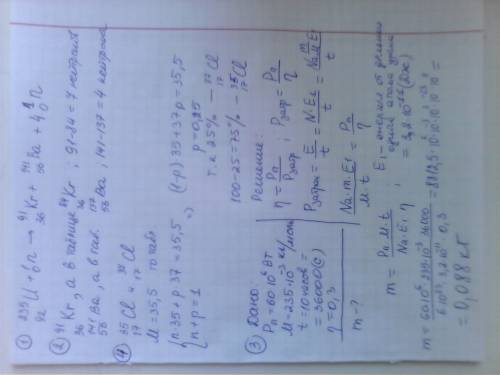 ① ²³⁵₉₂U + ¹₀n → ⁹¹₃₆Kr + ¹⁴¹₅₆Ba + 4¹₀n
② ⁹¹₃₆Kr, а в таблице ⁸⁴₃₆Kr, 91-84 = 7 нейтронов
¹⁴¹₅₆Ba, а в таб. ¹³⁷₅₆Ba, 141-137 = 4 нейтрона
④ ³⁵₁₇Cl и ³⁷₁₇Cl
M = 35,5 по таб.
{n·35 + p·37 = 35,5
{n + p = 1
=>
(1-p)35 + 37p = 35,5
p = 0,25
т.к 25% — ³⁷₁₇Cl
100-25 = 75% - ³⁵₁₇Cl
③ Дано:
Pп = 60·10⁶ Вт
M = 235·10⁻³ кг/моль
t = 10 часов =
= 36000(с)
η = 0,3
m - ?
Решение:
η = Pп/Pзатр ; Pзатр = Pп/η
Pзатрач = E/t = N·E₁/t = Na m/M E₁/t
Na·m·E₁/M·t = Pп/η
m = Pп·M·t/Na·E₁·η ; E₁ - энергия от деления
одного атома урана
= 3,2·10⁻¹¹ (Дж)
m = 60·10⁶·235·10⁻³·36000/6·10²³·3,2·10⁻¹¹·0,3 = 8812,5·10
= 0,088 кг